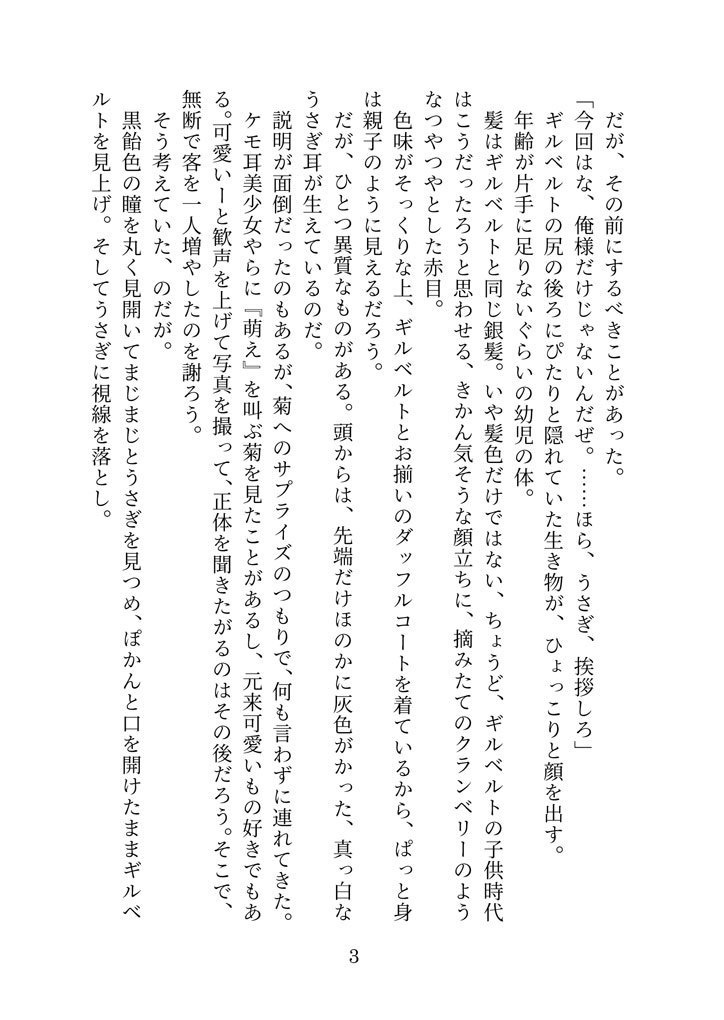 だが、その前にするべきことがあった。
「今回はな、俺様だけじゃないんだぜ。……ほら、うさぎ、挨拶しろ」
ギルベルトの尻の後ろにぴたりと隠れていた生き物が、ひょっこりと顔を出す。
年齢が片手に足りないぐらいの幼児の体。
髪はギルベルトと同じ銀髪。いや髪色だけではない、ちょうど、ギルベルトの子供時代
はこうだったろうと思わせる、きかん気そうな顔立ちに、摘みたてのクランベリーのよう
なつやつやとした赤目。
色味がそっくりな上、ギルベルトとお揃いのダッフルコートを着ているから、ぱっと身
は親子のように見えるだろう。
だが、ひとつ異質なものがある。頭からは、先端だけほのかに灰色がかった、真っ白な
うさぎ耳が生えているのだ。
説明が面倒だったのもあるが、菊へのサプライズのつもりで、何も言わずに連れてきた。
ケモ耳美少女やらに『萌え』を叫ぶ菊を見たことがあるし、元来可愛いもの好きでもあ
る。可愛いーと歓声を上げて写真を撮って、正体を聞きたがるのはその後だろう。そこで、
無断で客を一人増やしたのを謝ろう。
そう考えていた、のだが。
黒飴色の瞳を丸く見開いてまじまじとうさぎを見つめ、ぽかんと口を開けたままギルベ
ルトを見上げ。そしてうさぎに視線を落とし。
3